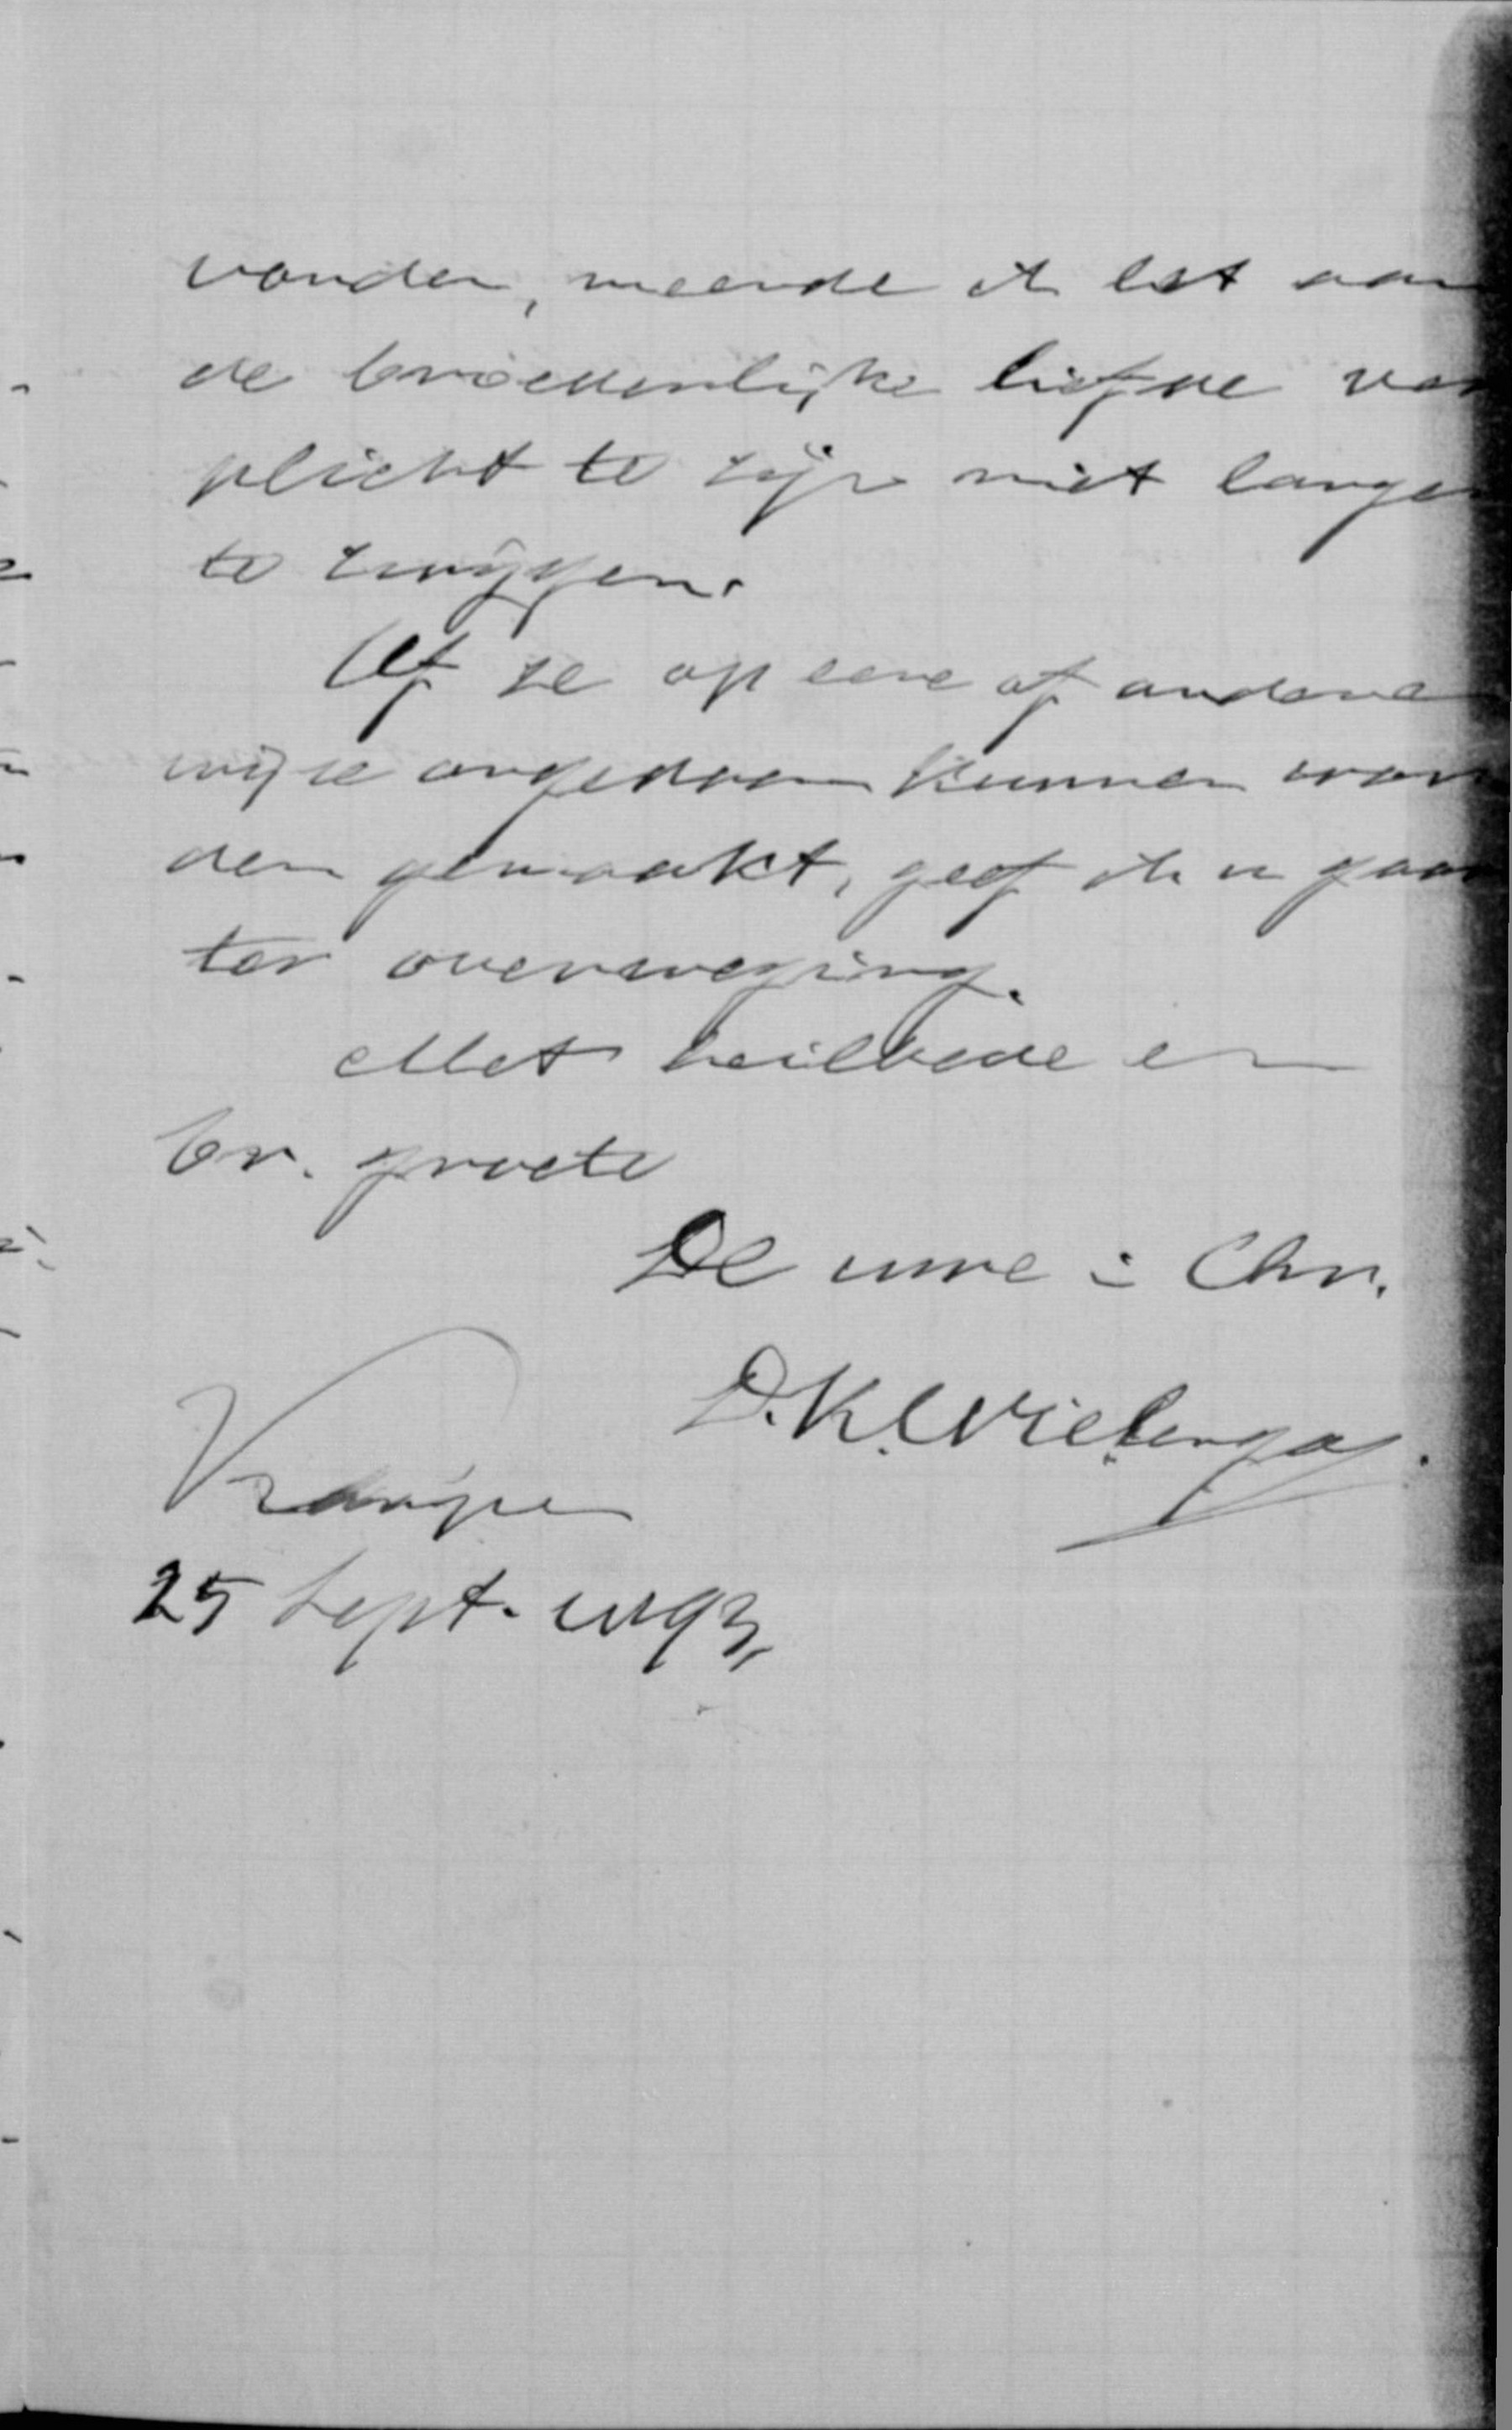 vonden, meende ik het aan
de broederlijke liefde ver
plicht te zijn niet langer
te zwijgen.
Of ze op eene of andere
wijze ongedaan kunnen wor
den gemaakt, geef ik u gaar
ter overweging.
Met heilbede en
br. groete
De uwe i Chr.
D.K. Wielenga.
Kampen
25 Sept. 1893,